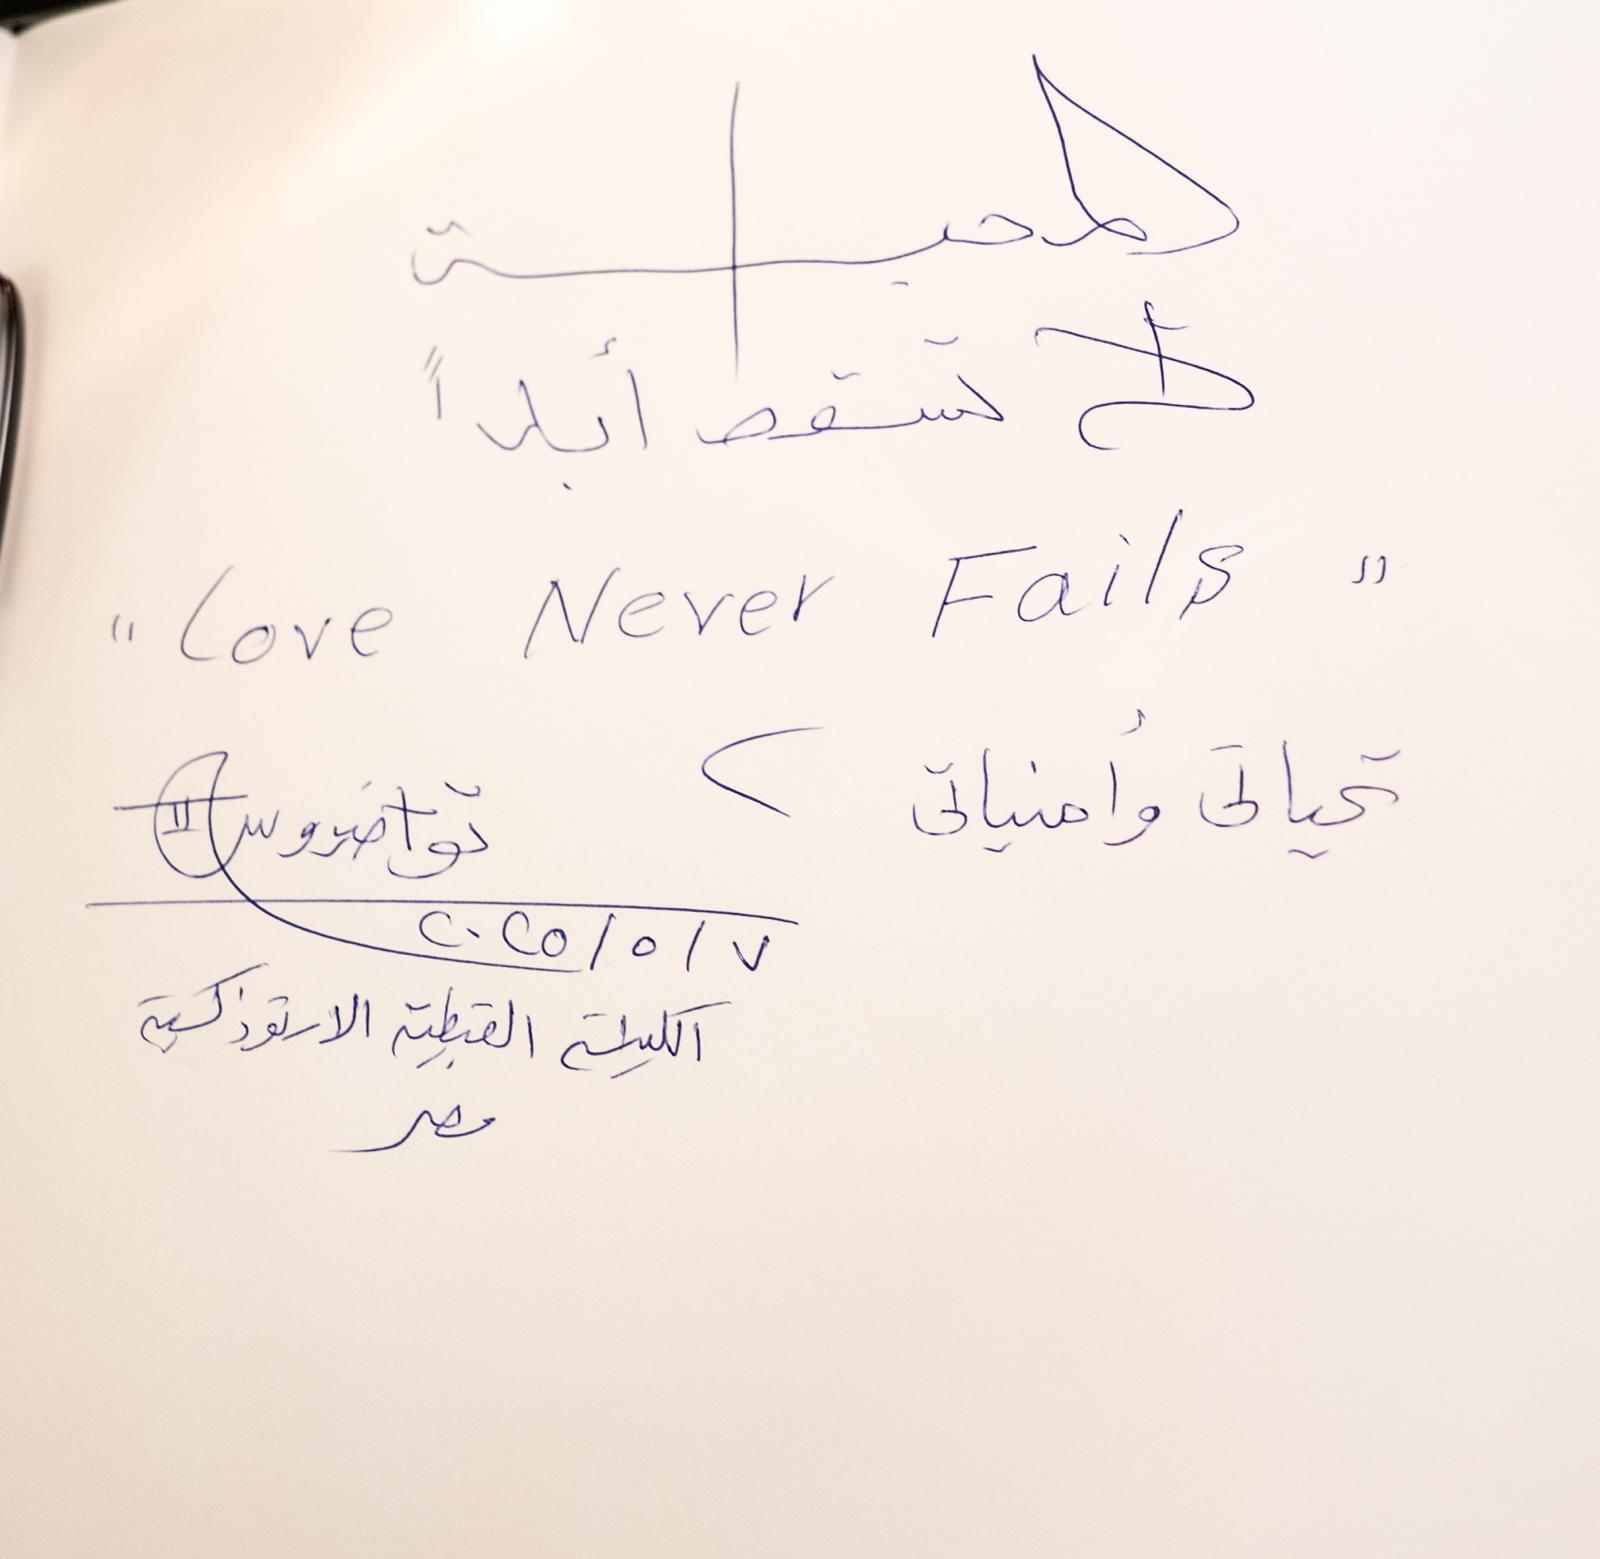 المحبــة
لا تسقط أبداً
"Love Never Fails"
تحياتى وأمنياتى
تواضروس II
٢٠٢٥/٥/٧
الكنيسة القبطية الارثوذكسية
مصر